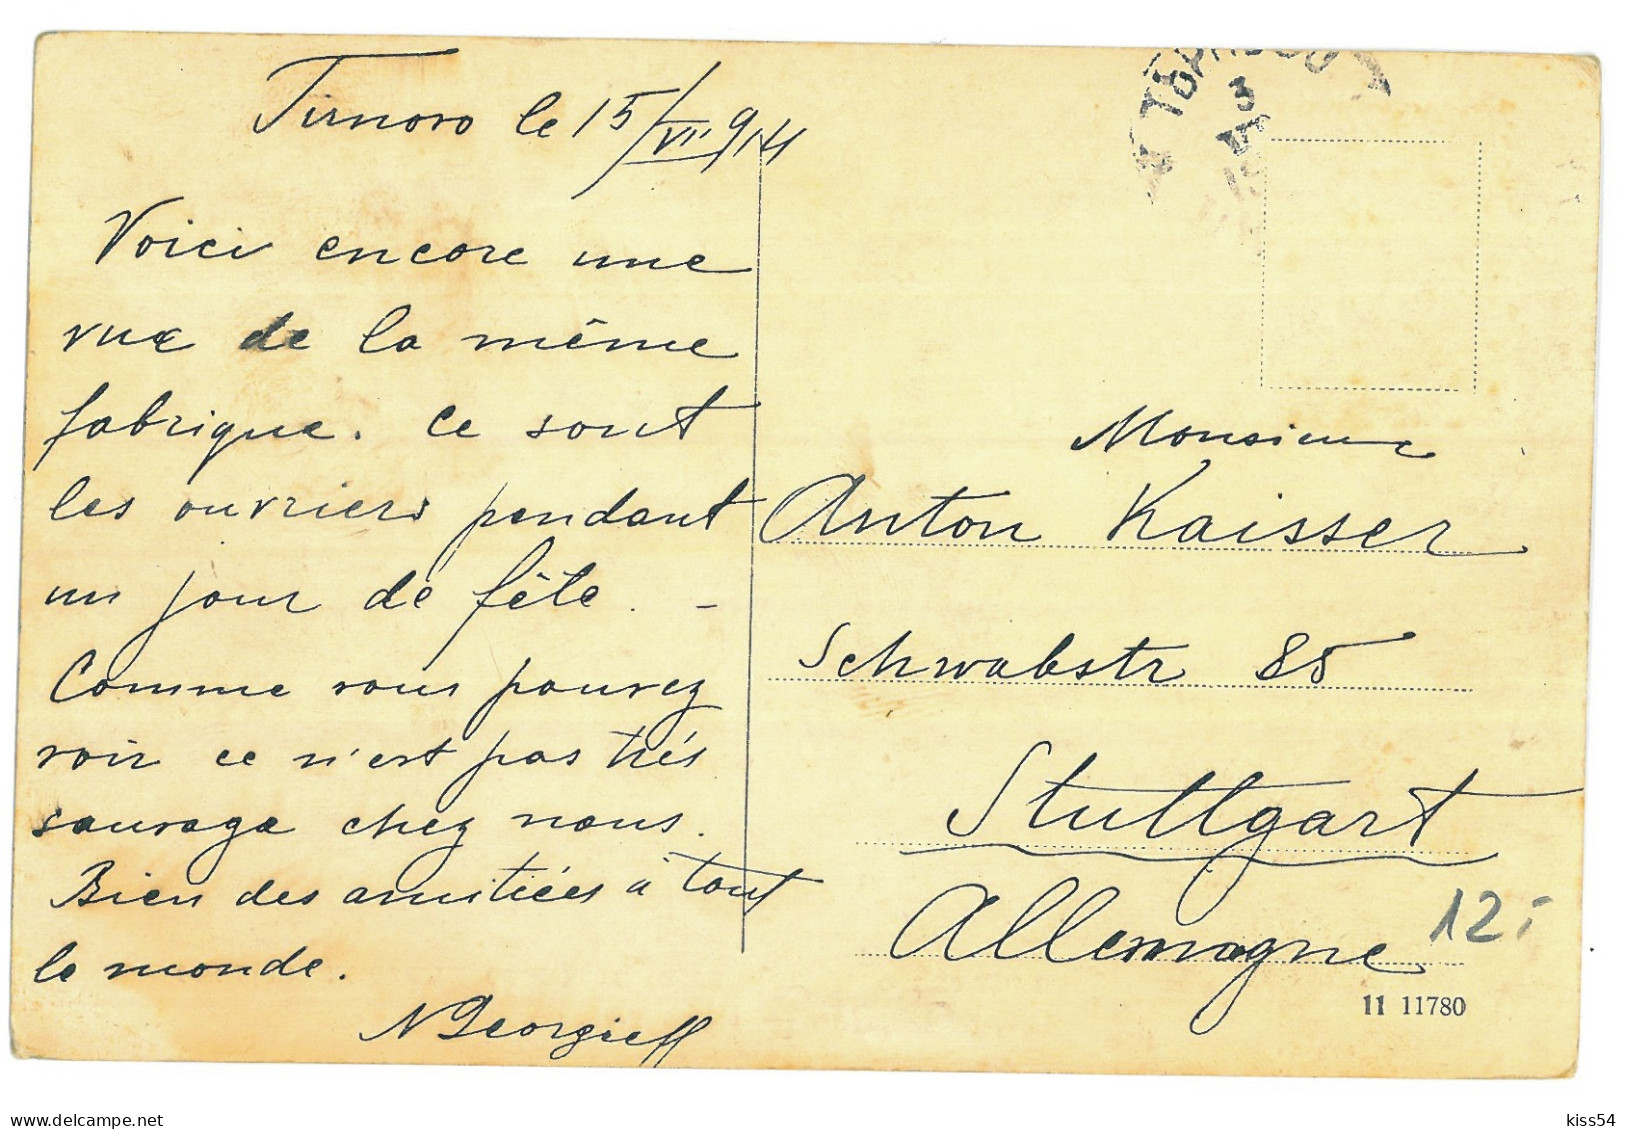 Tirnovo le 15/VI 914
Voici encore une
vue de la même
fabrique. Ce sont
les ouvriers pendant
un jour de fête. –
Comme vous pouvez
voir ce n'est pas très
sauvage chez nous.
Bien des amitiées à tout
le monde.
N Georgieff
3
VI
Monsieur
Anton Kaisser
Schwabstr 85
Stuttgart
Allemagne
12.-
11 11780
delcampe.net
kiss54